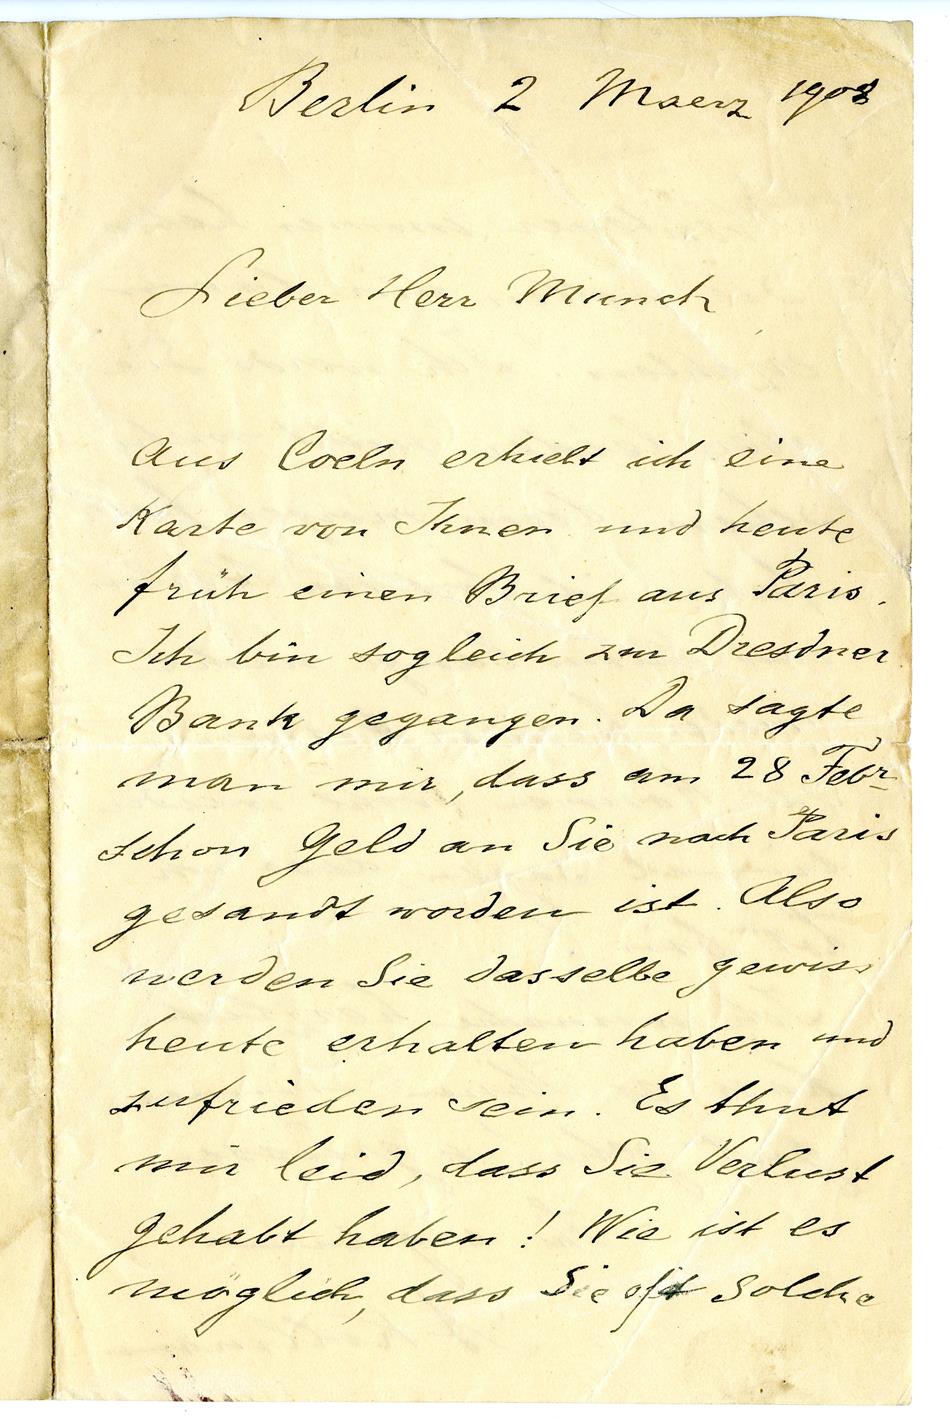 Berlin 2 Maerz 1908
Lieber Herr Munch
Aus Coeln erhielt ich eine
Karte von Ihnen und heute
früh einen Brief aus Paris.
Ich bin sogleich zur Dresdner
Bank gegangen. Da sagte
man mir, dass am 28 Febr
schon Geld an Sie nach Paris
gesandt worden ist. Also
werden Sie dasselbe gewiss
heute erhalten haben und
zufrieden sein. Es thut
mir leid, dass Sie Verlust
gehabt haben! Wie ist es
möglich, dass Sie oft solche